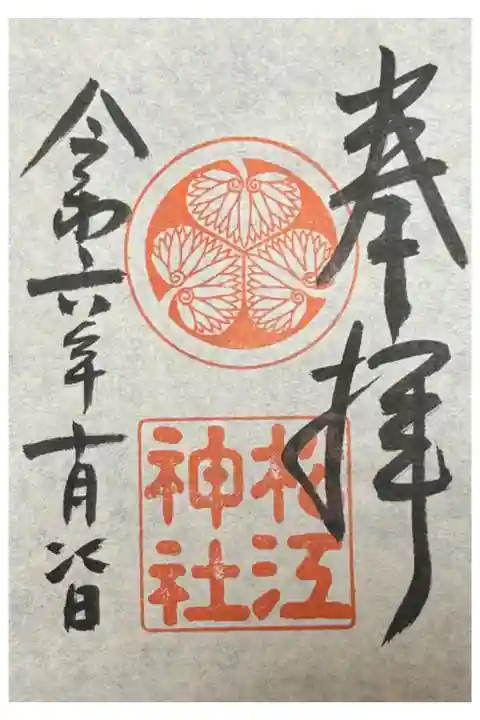 奉拝
松江
神社
令和六年十月日